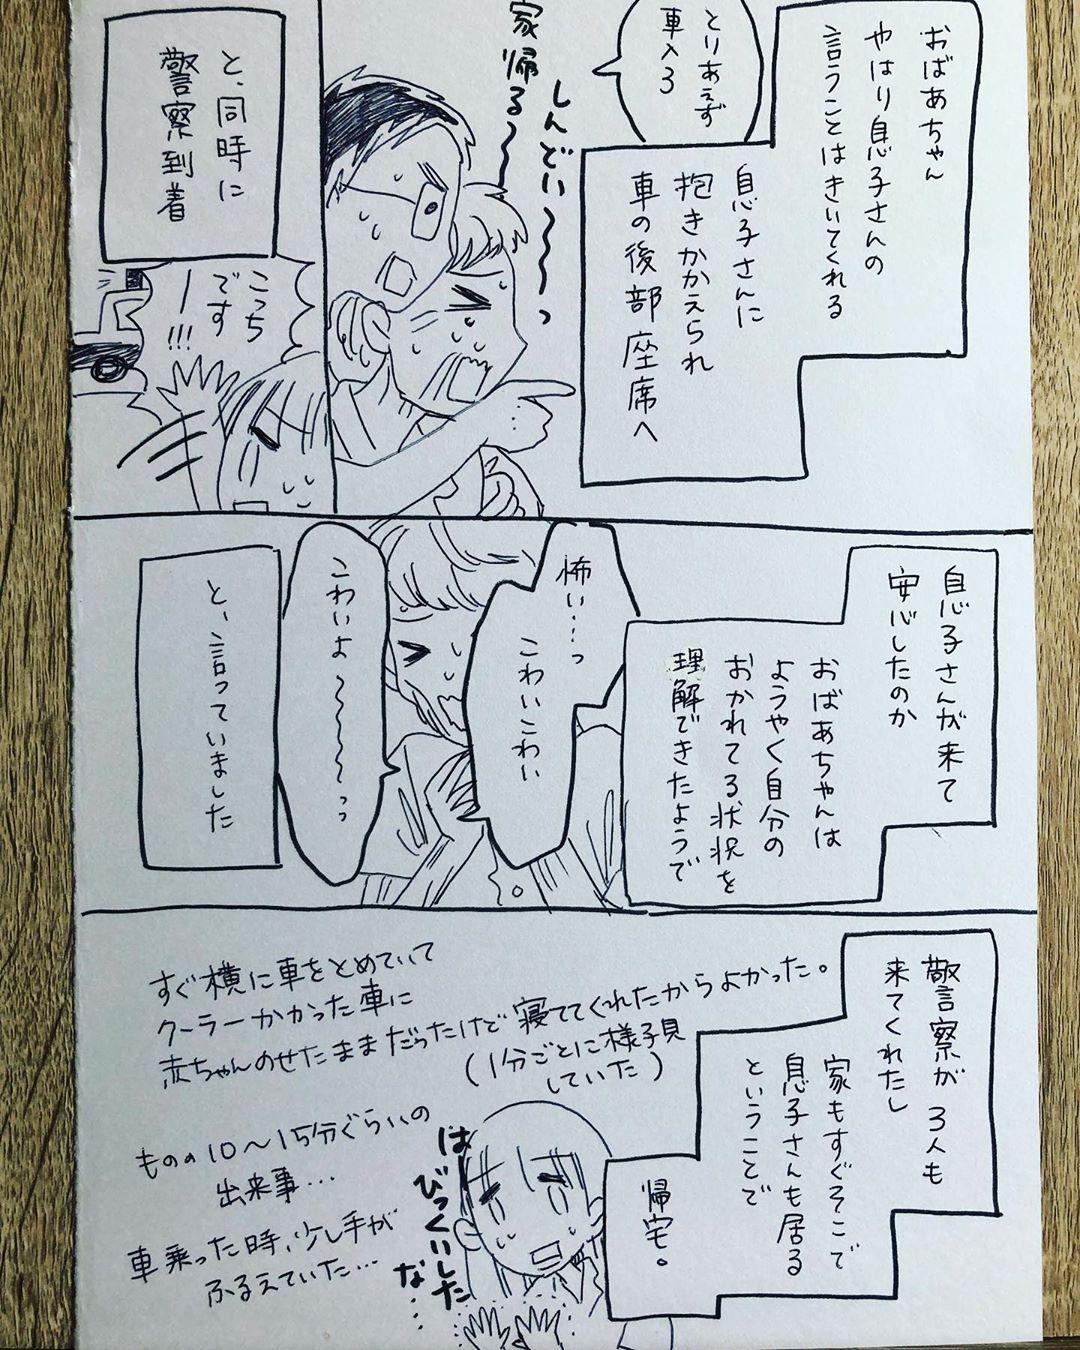 おばあちゃん
やはり息子さんの
言うことはきいてくれる
とりあえず
車入ろ
息子さんに
抱きかかえられ
車の後部座席へ
しんどい〜〜〜っ
家帰る〜〜
と、同時に
警察到着
こっち
です
ー!!!
息子さんが来て
安心したのか
おばあちゃんは
ようやく自分の
おかれてる状況を
理解できたようで
怖い…っ
こわいこわい
こわいよ〜〜〜〜っっ
と、言っていました
警察が3人も
来てくれたし
家もすぐそこで
息子さんも居る
ということで
帰宅。
すぐ横に車をとめていて
クーラーかかった車に
赤ちゃんのせたままだったけど寝ててくれたからよかった。
(1分ごとに様子見
していた)
ものの10〜15分ぐらいの
出来事…
車乗った時、少し手が
ふるえていた…
は
びっくりした
な…